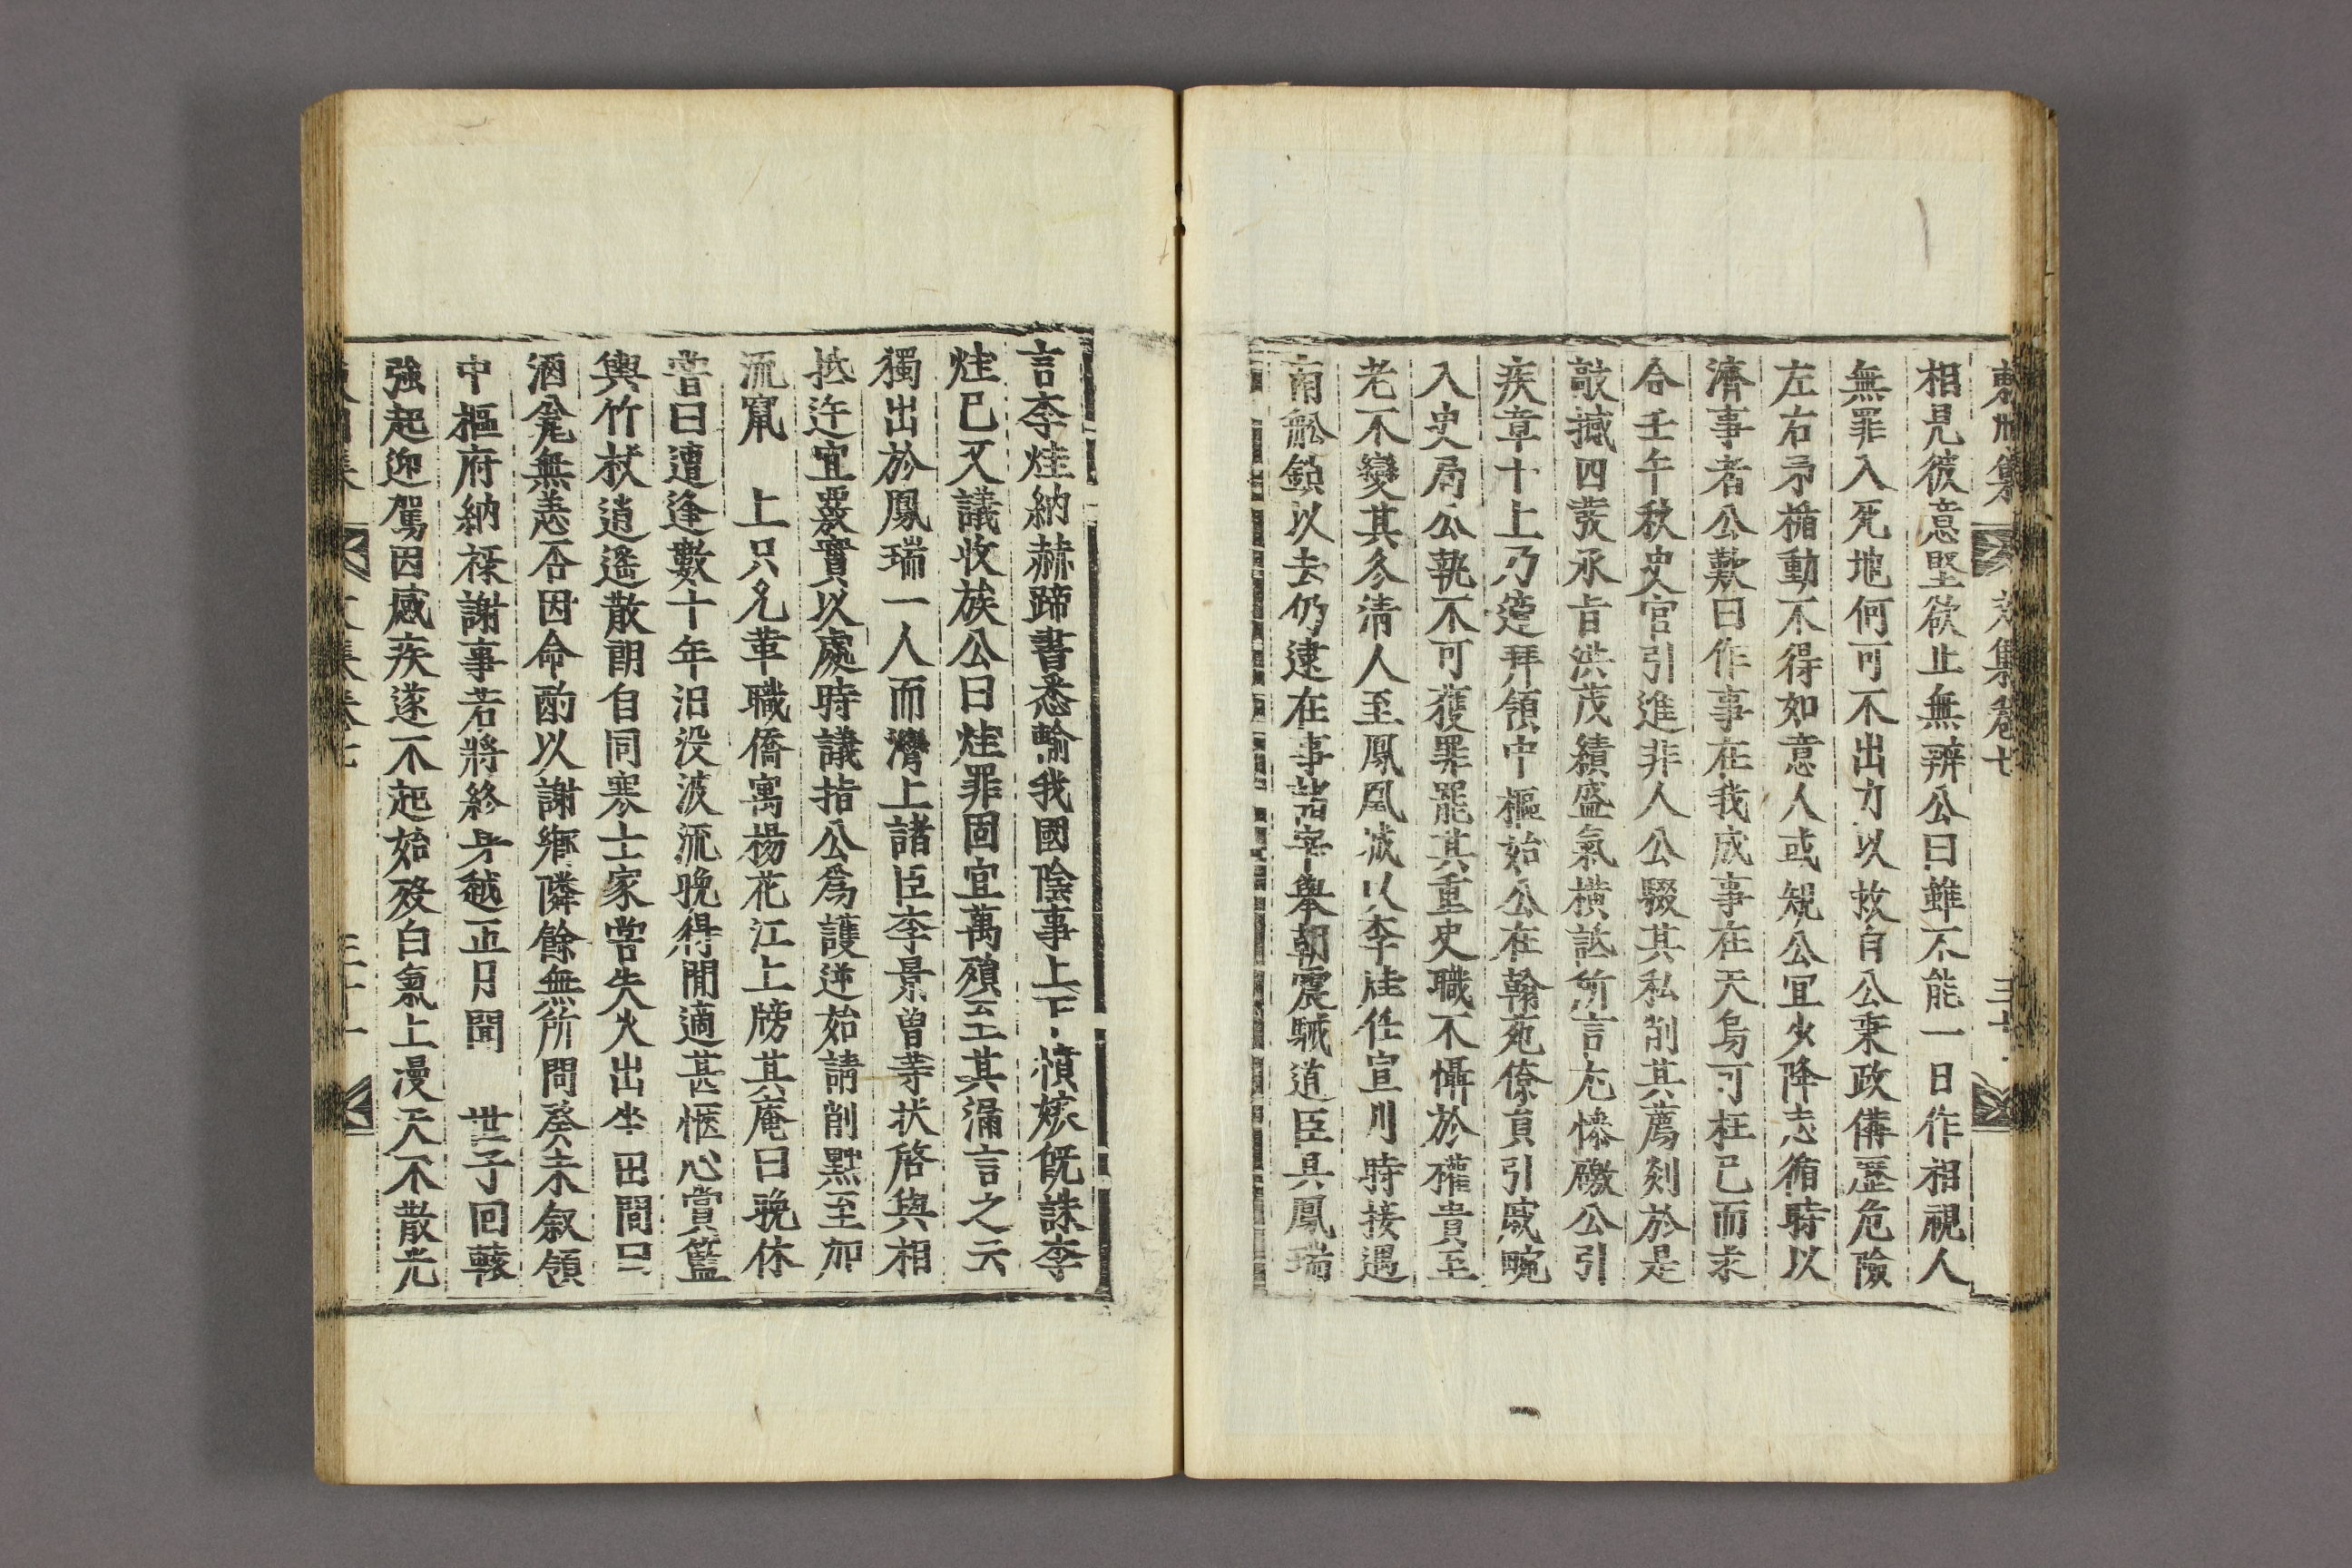 東州集 文集卷七 三十
相見彼意堅欲止無辨公曰雖不能一日作相視人
無罪入死地何可不出力以救自公秉政備歷危險
左右矛楯動不得如意人或規公宜少降志循時以
濟事者公歎曰作事在我成事在天烏可枉己而求
合壬午秋史官引進非人公駁其私削其薦剡於是
敲撼四發承旨洪茂績盛氣橫詆所言尤慘礉公引
疾章十上乃遞拜領中樞始公在翰苑僚員引戚畹
入史局公執不可獲罪罷其重史職不懾於權貴至
老不變其冬淸人至鳳凰城以李烓任宣川時接遇
南舩鎖以去仍逮在事諸宰擧朝震駴道臣具鳳瑞
言李烓納赫蹄書悉輸我國陰事上下憤嫉旣誅李
烓已又議收族公曰烓罪固宜萬殞至其漏言之云
獨出於鳳瑞一人而灣上諸臣李景曾等狀啓與相
抵迕宜覈實以處時議指公爲護逆始請削黜至加
流竄 上只允革職僑寓楊花江上牓其庵曰晩休
嘗曰遭逢數十年汨沒波流晩得閒適甚愜心賞籃
輿竹杖逍遙散朗自同寒士家嘗失火出坐田間只
酒瓮無恙否因命酌以謝鄕隣餘無所問癸未叙領
中樞府納祿謝事若將終身越正月聞 世子回轅
強起迎駕因感疾遂不起始歿白氣上漫天不散光
文集卷七